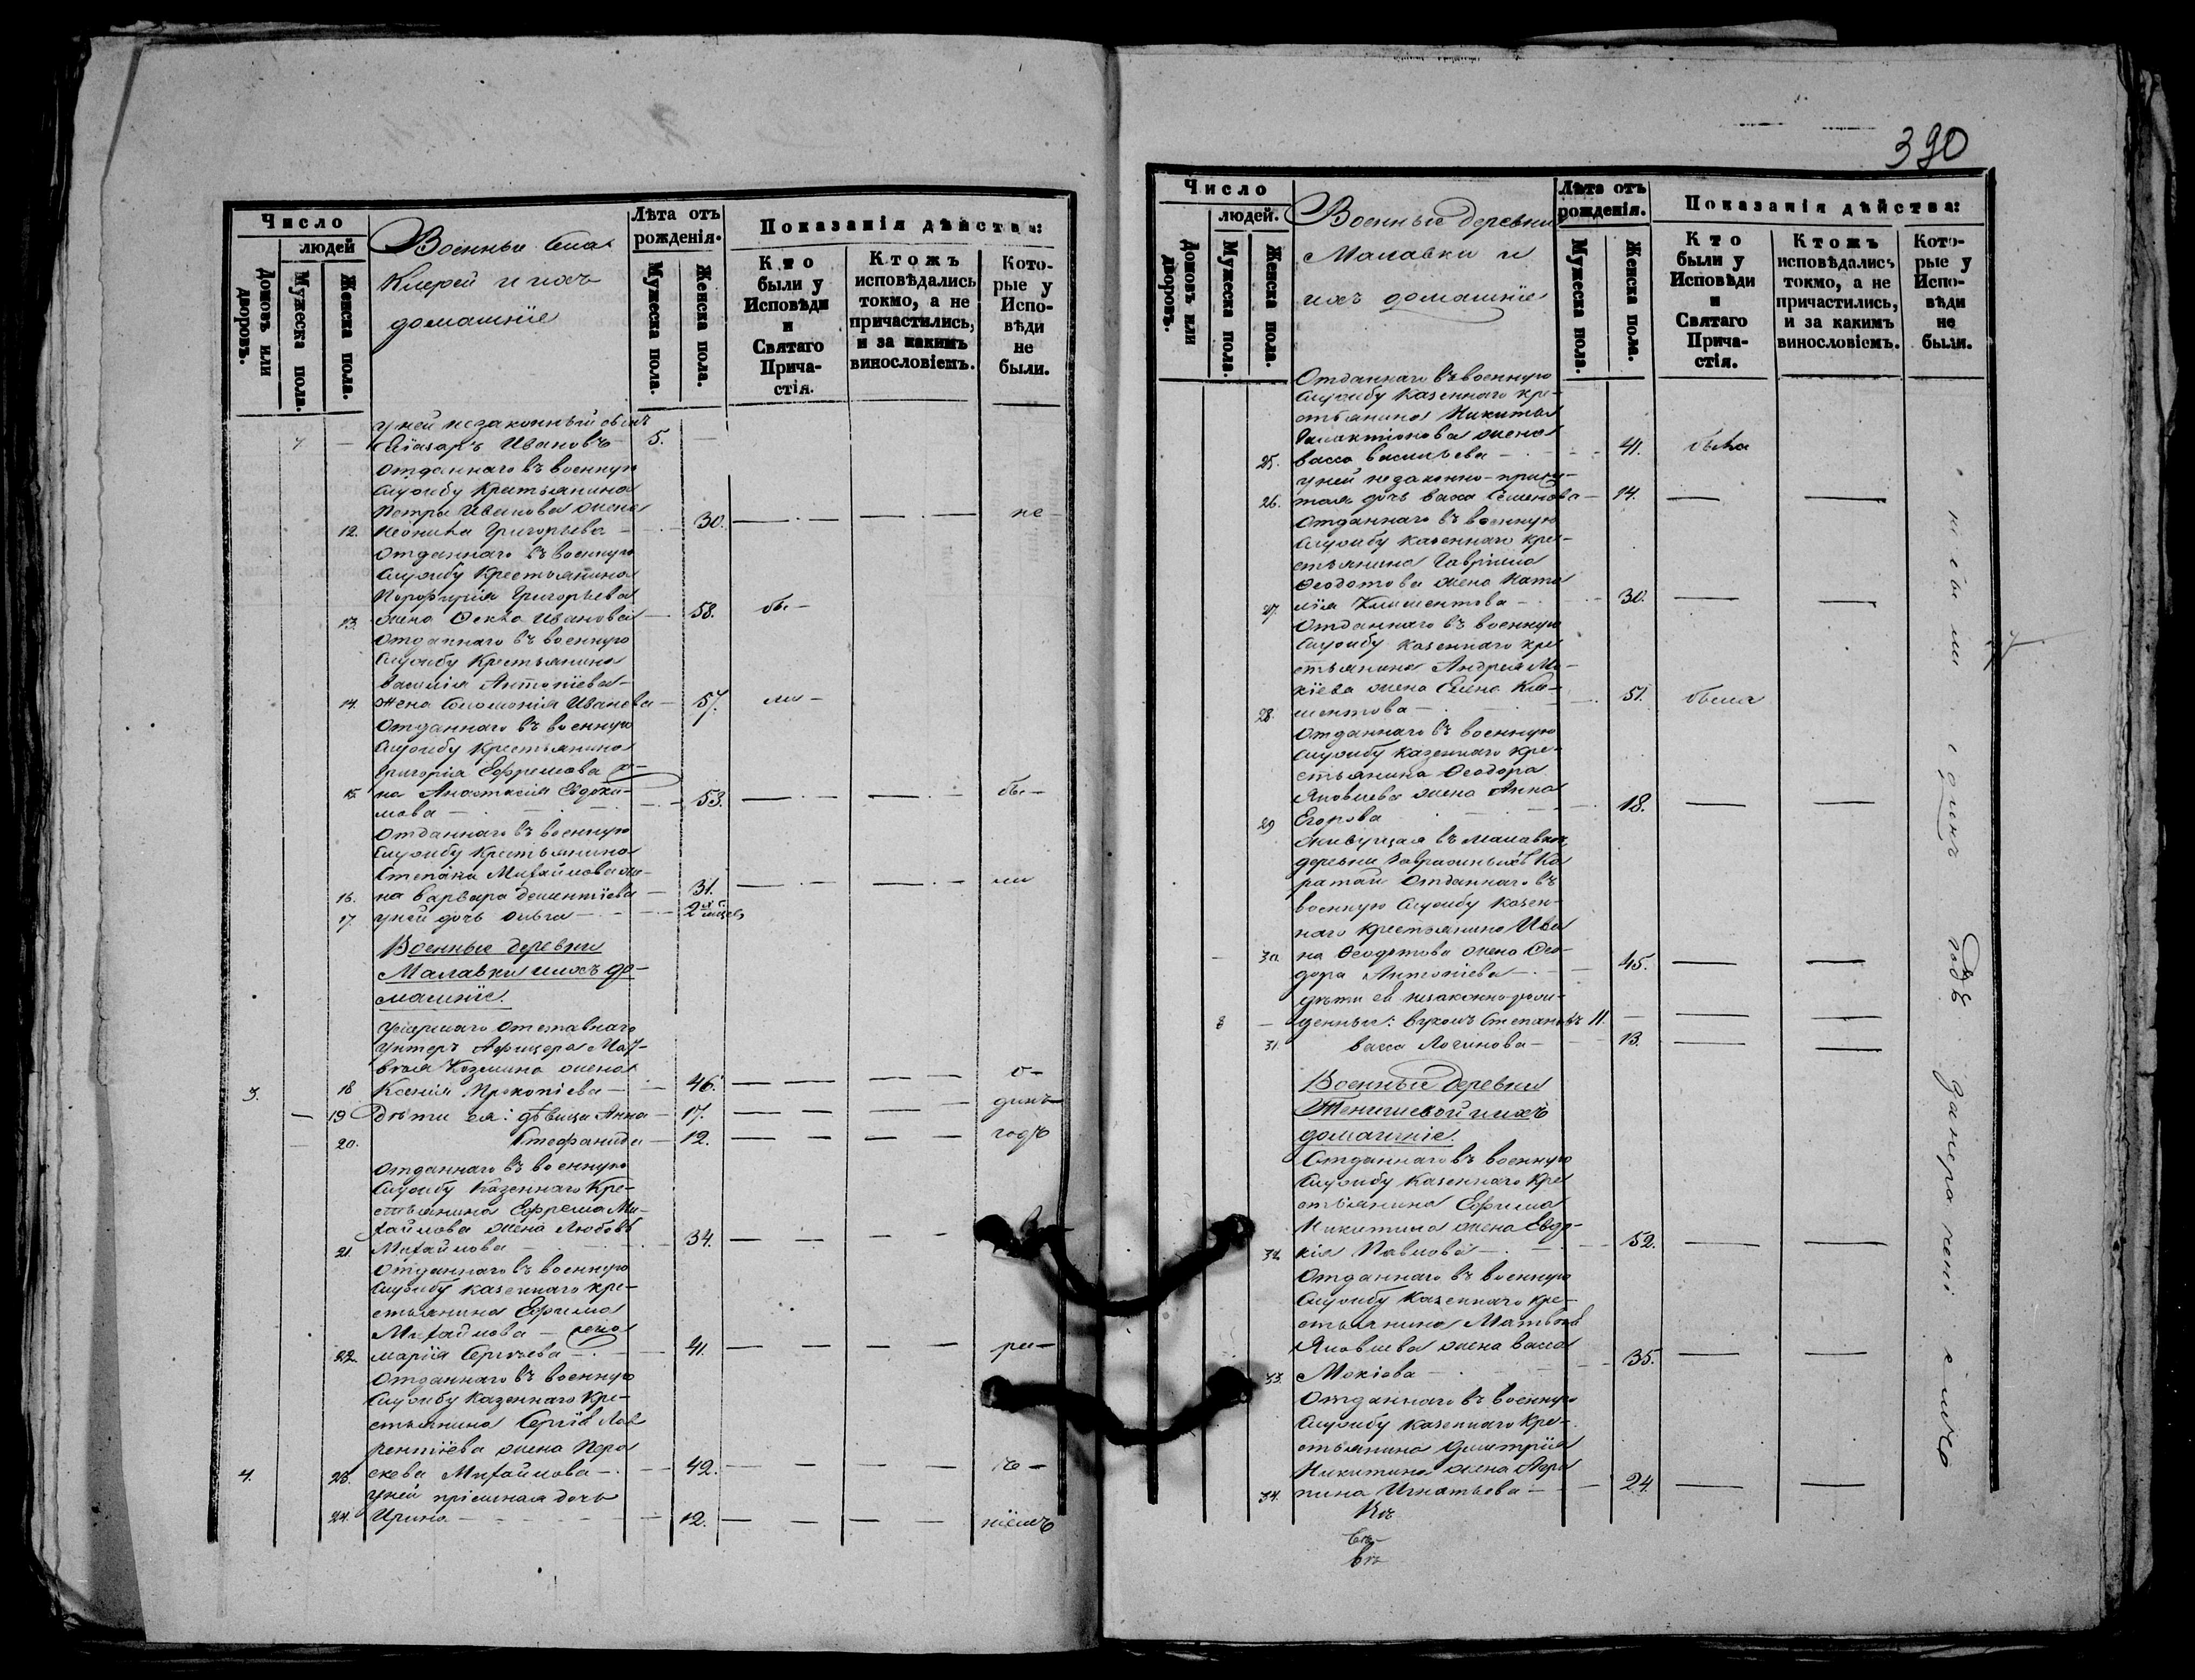 Число
людей
Домовъ или дворовъ.
Мужеска пола.
Женска пола.
Военныи
Киерей и ихъ
домашніе
Лѣта отъ
рожденія.
Мужеска пола.
Женска пола.
Показанія дѣйства:
Кто
были у
Исповѣди
и
Святаго
Прича-
стія.
Ктожъ
исповѣдались
токмо, а не
причастились,
и за какимъ
винословіемъ.
Кото-
рые у
Испо-
вѣди
не
были.
у ней незаконный сынъ
7 — Еліазаръ Ивановъ — 5. —
Отданнаго въ военную
службу Крестьянина
Петра Иванова жена
12. Леонилла Григорьева — 30. — не
Отданнаго въ военную
службу Крестьянина
Порфирія Григорьева
13. жена Ѳекла Иванова — 58. бы-
Отданнаго въ военную
службу Крестьянина
Василія Антоніева
14. жена Соломонія Иванова — 57. ли-
Отданнаго въ военную
службу Крестьянина
Григорія Ефремова же-
15. на Анастасія Евдоки- 53. — бы-
мова —
Отданнаго въ военную
службу Крестьянина
Степана Михайлова же-
16. на Варвара Дементіева — 31. — ли
17. у ней дочь Ольга — 2
Военные деревни
Малавки и ихъ до-
машніе.
Умершаго отставнаго
Унтеръ Афицера Мат-
вѣя Козмина жена
3. 18 Ксенія Прокопіева — 46. — о-
— 19 Дѣти ея: дѣвица Анна — 17. — динъ
— 20. Стефанида — 12. — годъ
Отданнаго въ военную
службу Казеннаго Кре-
стьянина Ефрема Ми-
хайлова жена Любовь
21 Михайлова — 34. —
Отданнаго въ военную
службу казеннаго кре-
стьянина Ефима
Михайлова — жена
22. Марія Сергѣева — 41. — ра-
Отданнаго въ военную
службу Казеннаго Кре-
стьянина Сергія Лав
рентіева жена Пара
4. 23. скева Михайлова — 42. —
у ней пріемная дочь
24. Ирина — 12. — ніемъ
390
Число
людей.
Домовъ или дворовъ.
Мужеска пола.
Женска пола.
Военные деревни
Малавки и
ихъ домашніе
Лѣта отъ
рожденія.
Мужеска пола.
Женска пола.
Показанія дѣйства:
Кто
были у
Исповѣди
и
Святаго
Прича-
стія.
Ктожъ
исповѣдались
токмо, а не
причастились,
и за какимъ
винословіемъ.
Кото-
рые у
Испо-
вѣди
не
были.
Отданнаго въ военную
службу Казеннаго кре-
стьянина Никиты
Галактіонова жена
25. Васса Васильева — 41. была
у ней незаконно-приж-
26. тая дочь Васса Семенова — 14. — —
Отданнаго въ военную
службу казеннаго кре-
стьянина Гавріила
Ѳеодотова жена Ната
27. лія Климентова — 30. — —
Отданнаго въ военную
службу казеннаго кре
стьянина Андрея Мо-
кіева жена Елена Кли-
28. ментова — 51. была
Отданнаго въ военную
службу казеннаго кре-
стьянина Ѳеодора
Яковлева жена Анна
29 Егорова 18. — —
Живущая въ Малавкѣ
деревни
ратай Отданнаго въ
военную службу казен-
наго крестьянина Ива
30. на Ѳеодотова жена Ѳео-
дора Антоніева — 45. — —
дѣти ея незаконно-рож-
8 — денные: Вуколъ Степановъ 11. — — —
31. Васса Логинова — 13. — —
Военные деревни
Тенишевой и ихъ
домашніе.
Отданнаго въ военную
службу Казеннаго Кре
стьянина Ефима
Никитина жена Евдо-
32. кія Павлова — 52. — —
Отданнаго въ военную
службу Казеннаго кре-
стьянина Матвѣя
Яковлева жена Васса
33. Мокіева — 35. — —
Отданнаго въ военную
службу казеннаго Кре-
стьянина Димитрія
Никитина жена Агри
34. пина Игнатьева — 24. — —
не были одинъ годъ за нераченіемъ